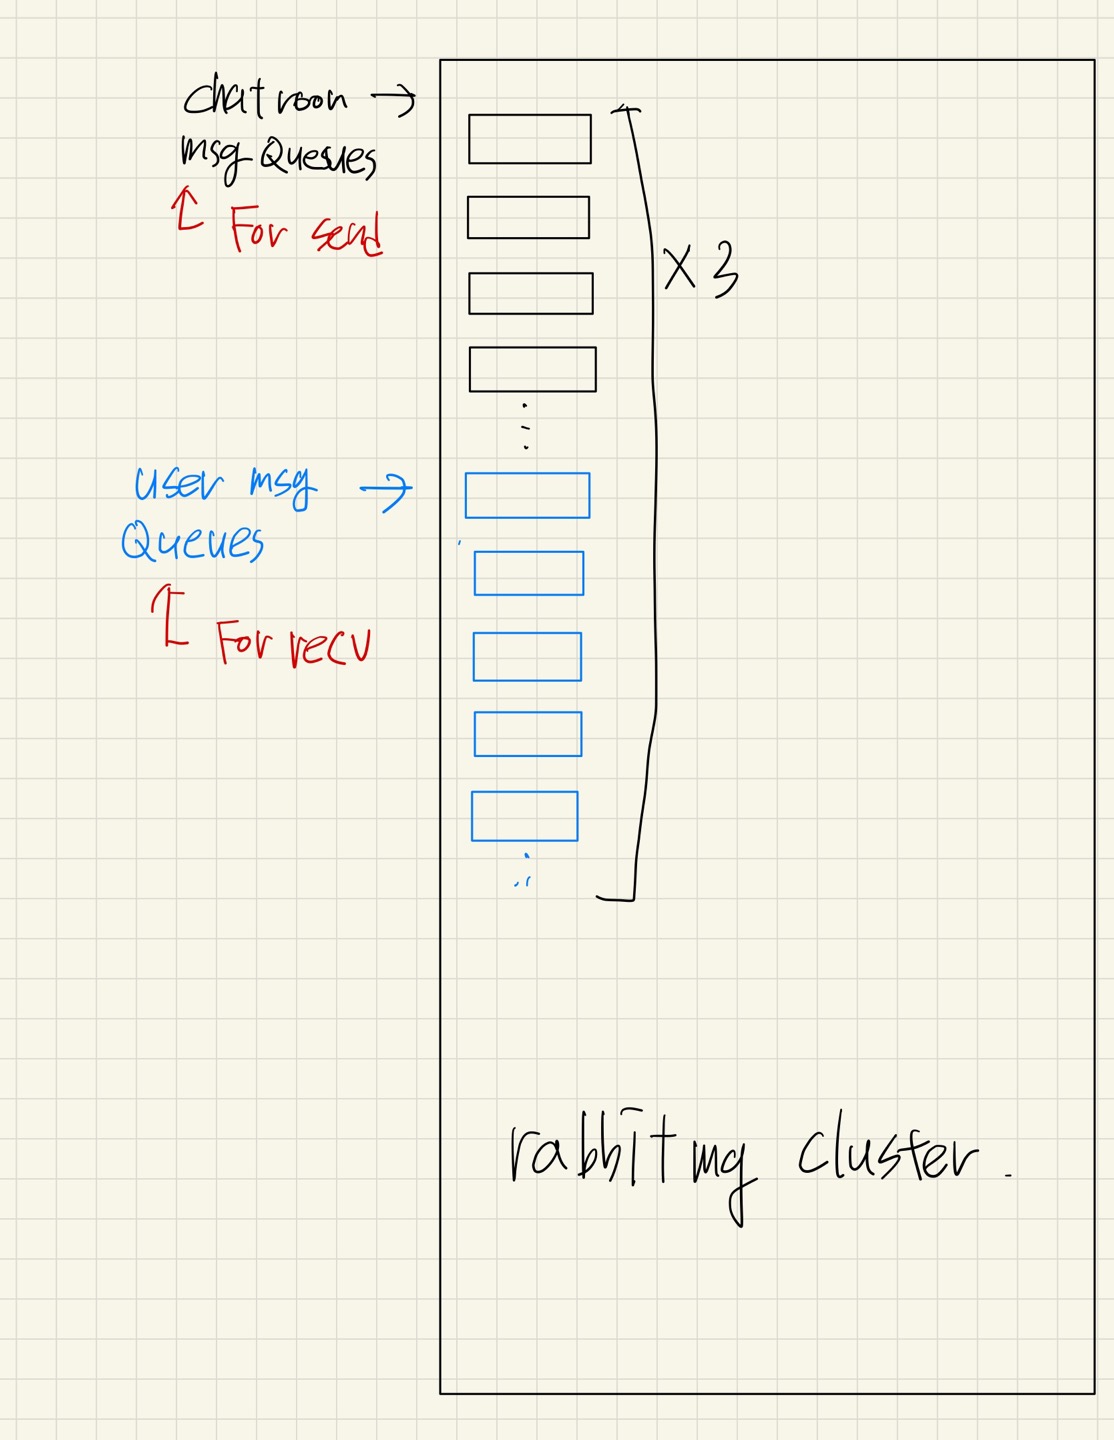 chat room →
msg Queues
For send
X 3
user msg →
Queues
For recv
rabbitmq cluster.